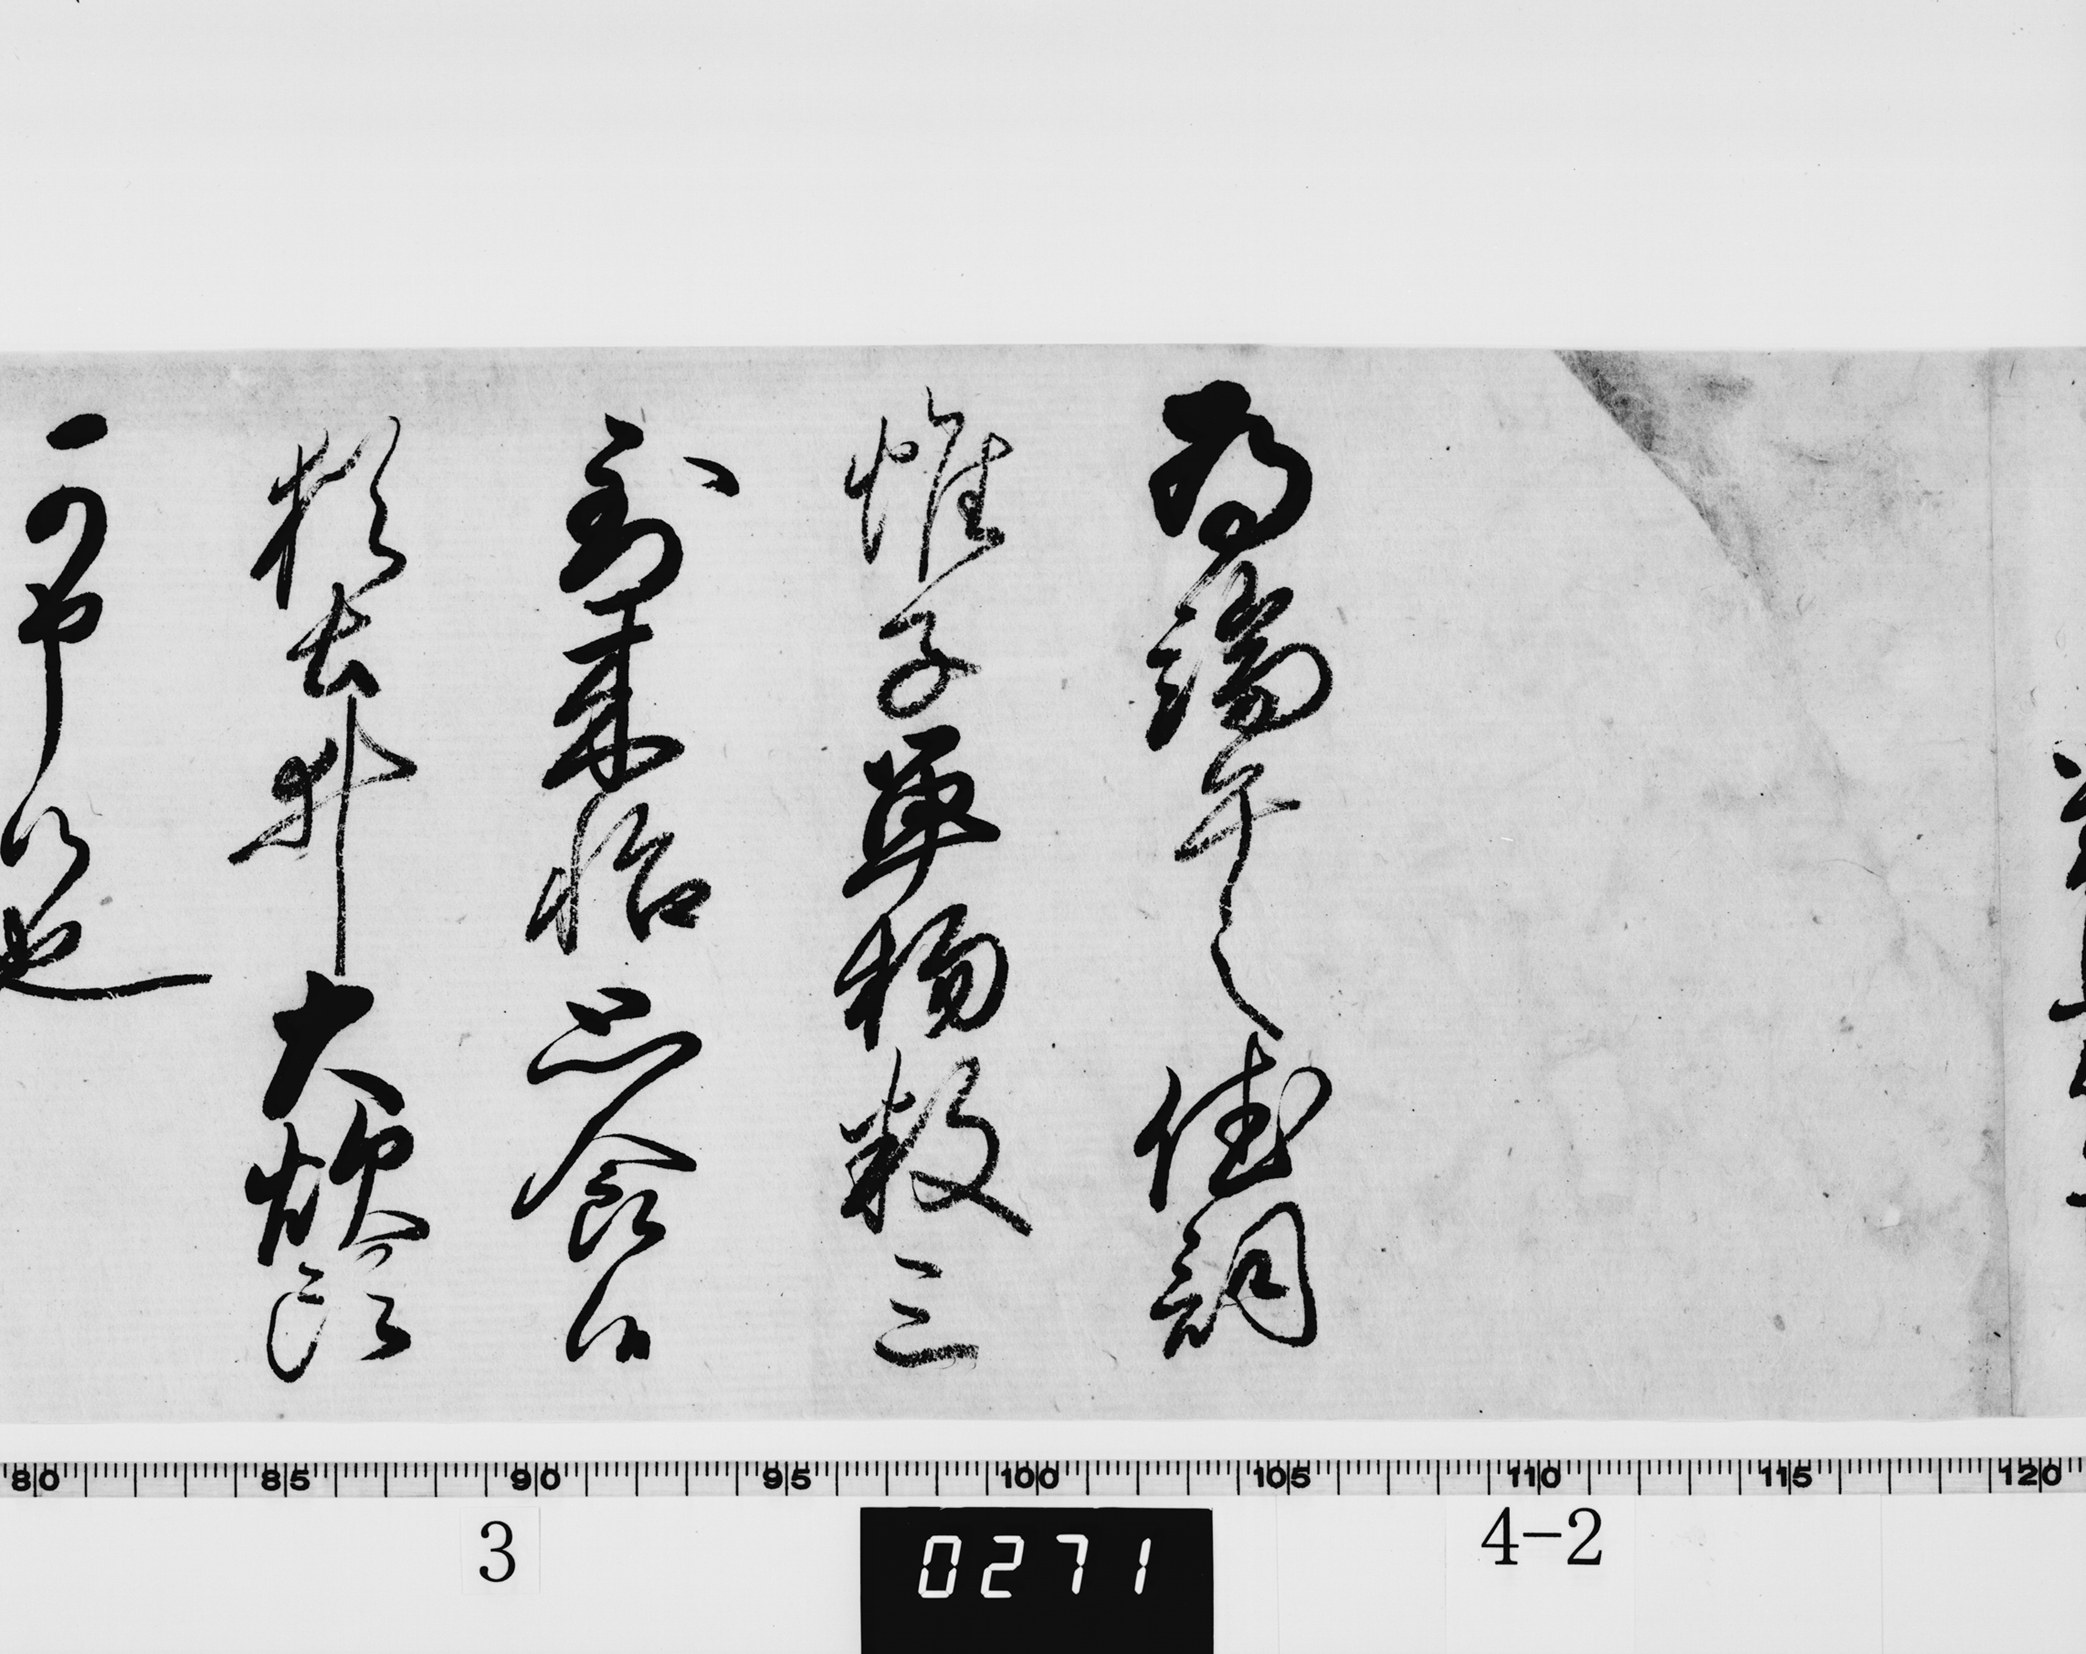 為端午之佳詞
帷子単物数三
到来怡思食候
猶土井大炊頭
可申候也
80 85 90 95 100 105 110 115 120
3 0271 4-2